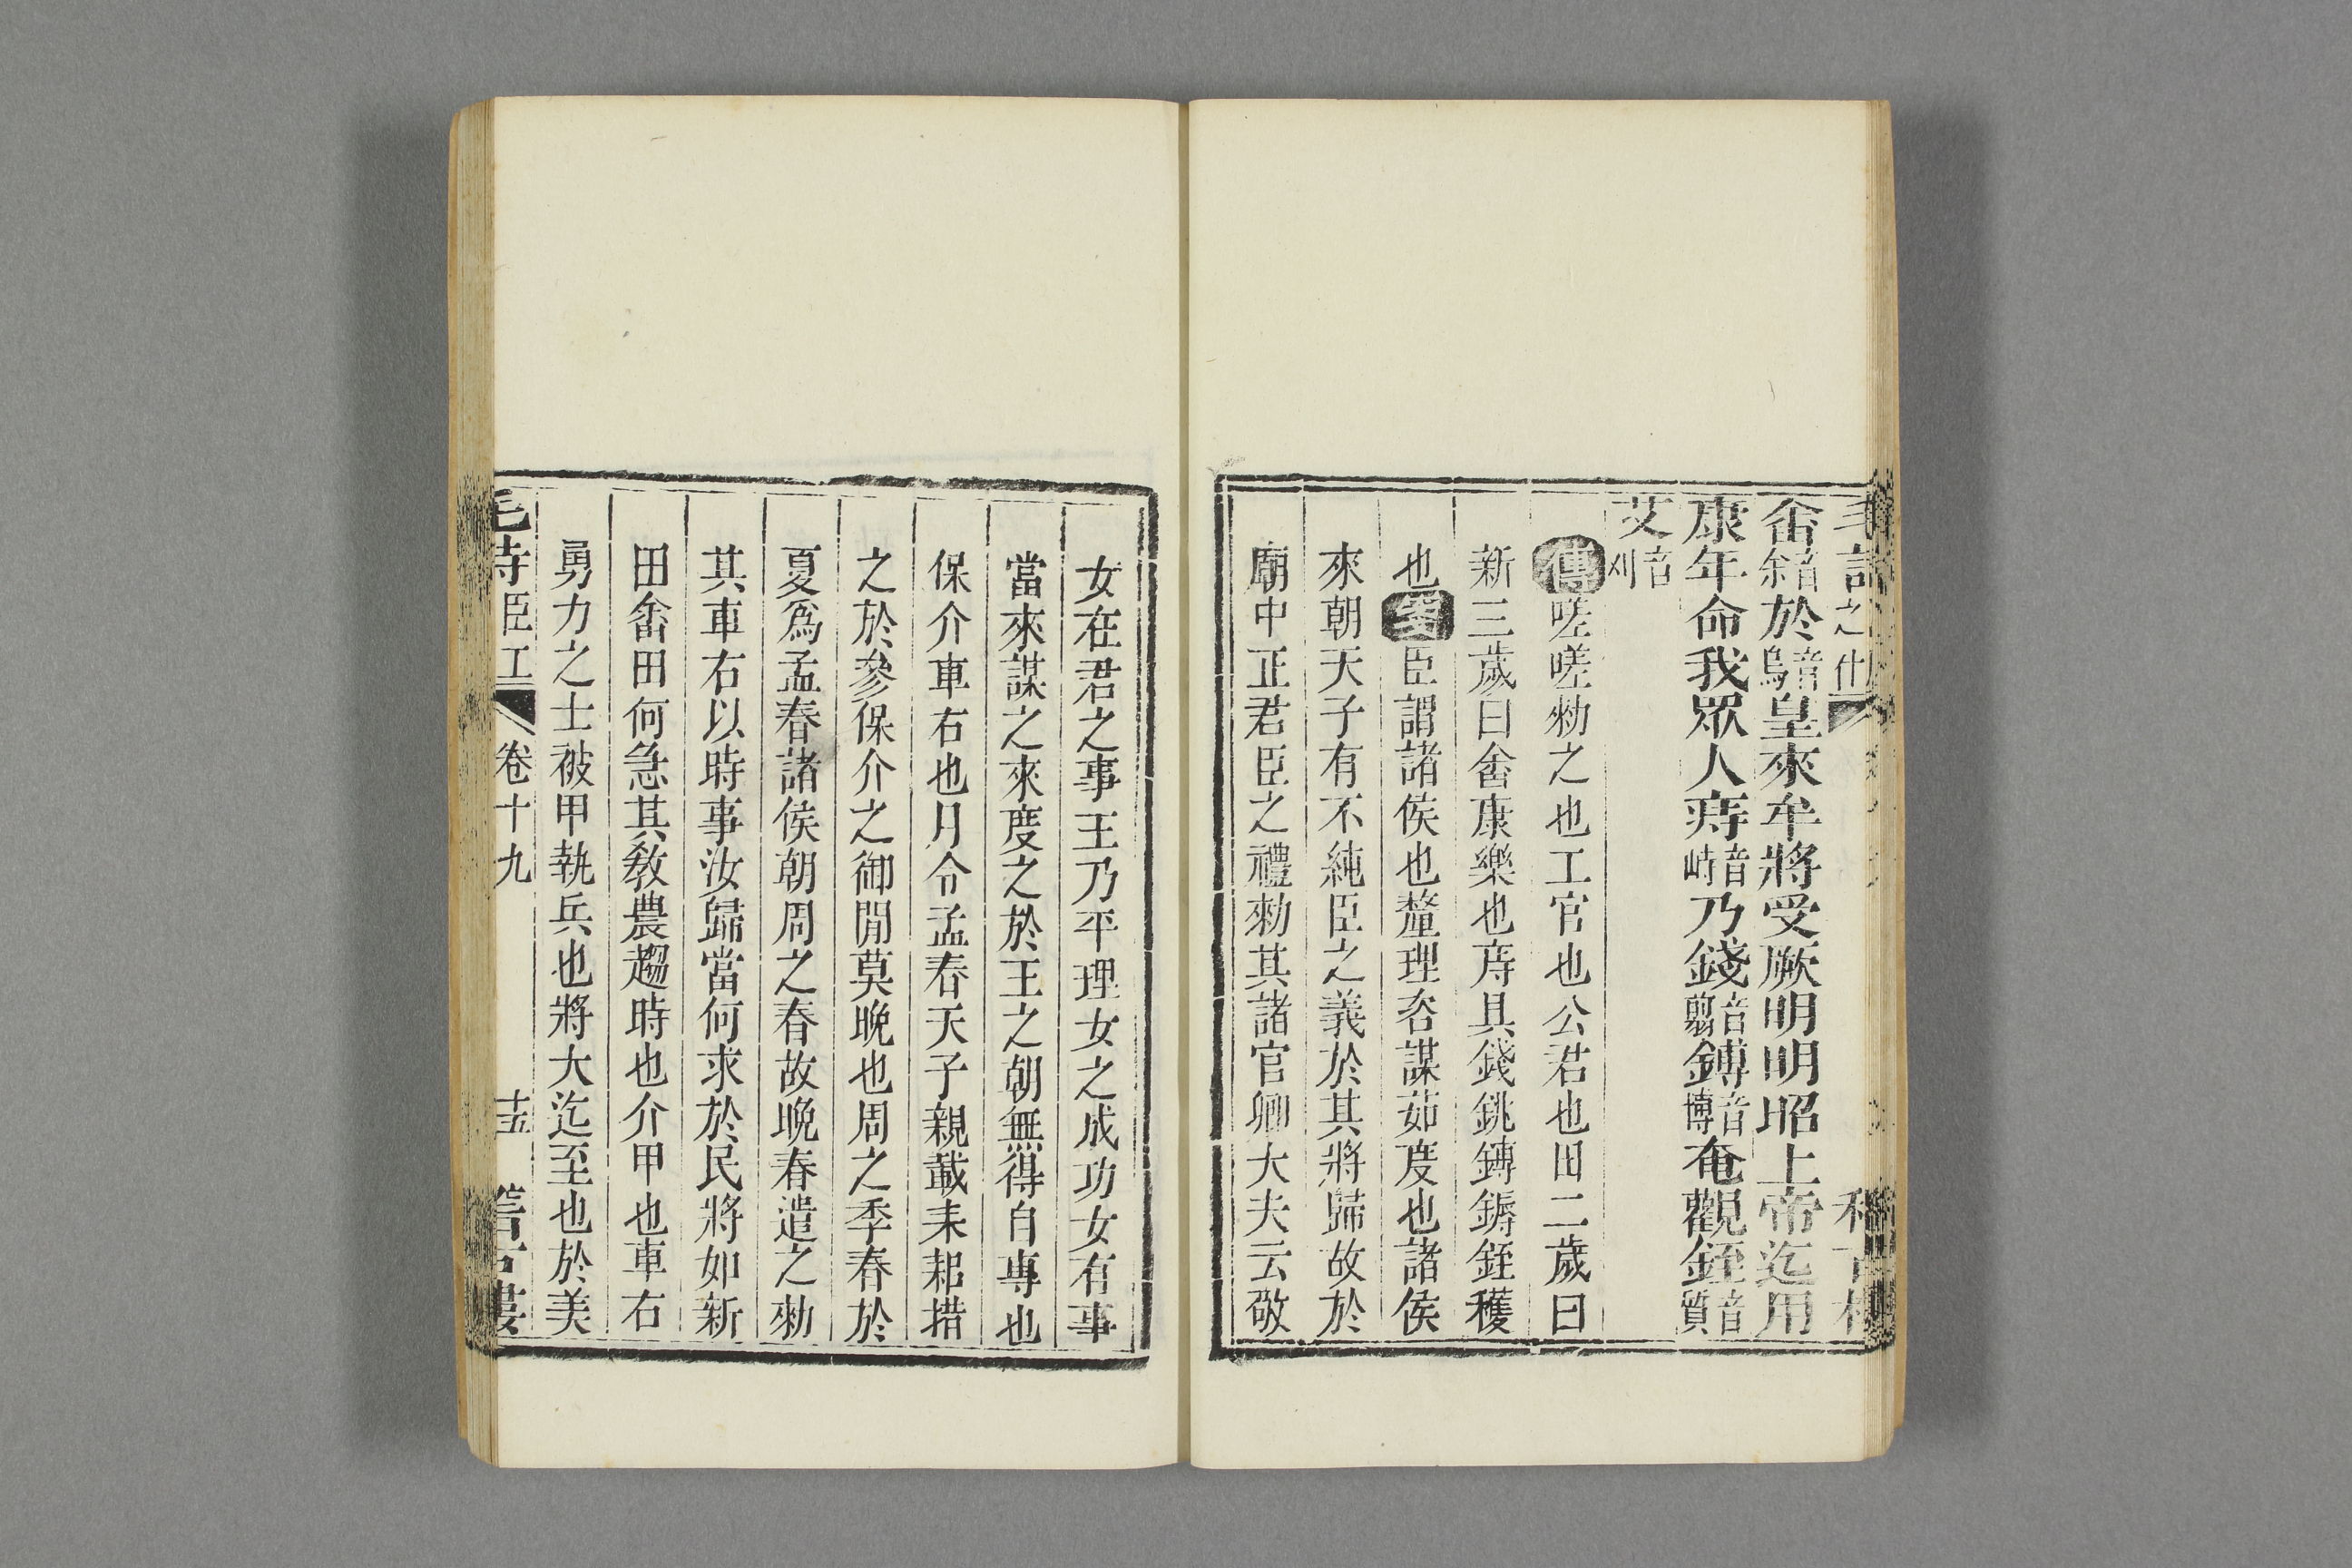 畬音徐於音烏皇來牟將受厥明明昭上帝迄用
康年命我眾人庤音峙乃錢音翦鎛音博奄觀銍音質
艾音刈
傳嗟嗟勑之也工官也公君也田二歲曰
新三歲曰畬康樂也庤具錢銚鎛鎒銍穫
也箋臣謂諸侯也釐理咨謀茹度也諸侯
來朝天子有不純臣之義於其將歸故於
廟中正君臣之禮勑其諸官卿大夫云敬
女在君之事王乃平理女之成功女有事
當來謀之來度之於王之朝無得自專也
保介車右也月令孟春天子親載耒耜措
之於參保介之御閒莫晚也周之季春於
夏爲孟春諸侯朝周之春故晚春遣之勑
其車右以時事汝歸當何求於民將如新
田畬田何急其敎農趨時也介甲也車右
勇力之士被甲執兵也將大迄至也於美
毛詩臣工 卷十九 十五